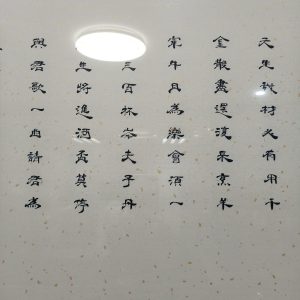 天生我材必有用千
金散盡還復來烹羊
宰牛且為樂會須一
三百杯岑夫子丹
生將進酒盃莫停
與君歌一曲請君為